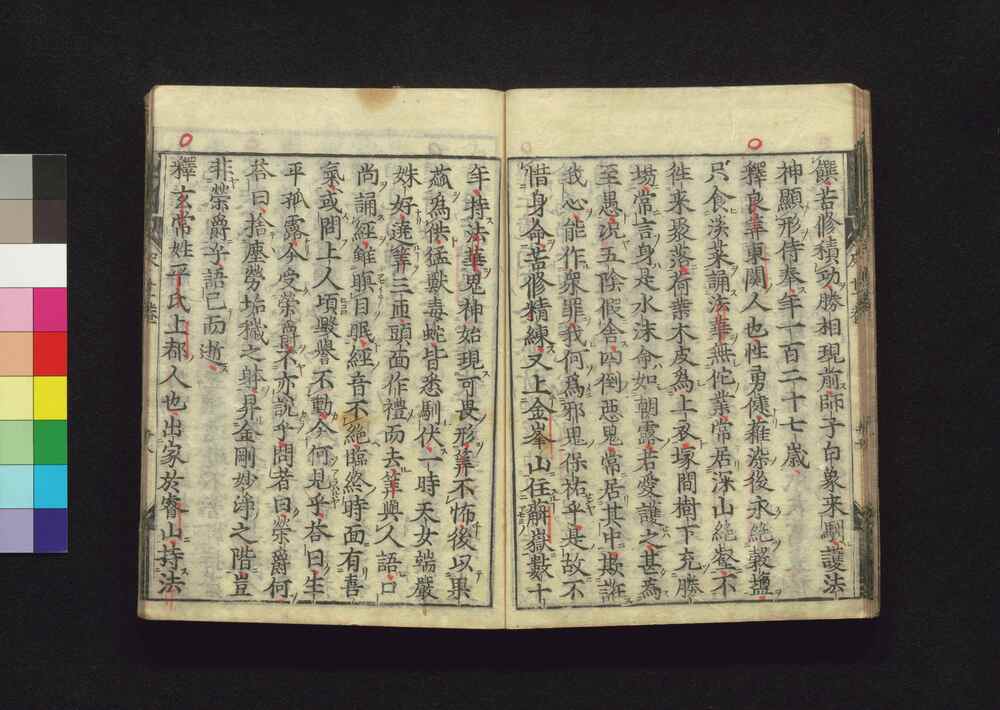 饌苦修積功勝相現前師子白象來馴護法
神顯形侍奉年一百二十七歳
釋良筭東關人也性勇健薙染後永絶穀塩
只食淡菜誦法華無佗業常居深山絶壑不
徃来聚落荷葉木皮爲上衣塚間樹下充勝
場常言身是水沫命如朝露若愛護之甚爲
至愚况五陰假舎四倒惡鬼常居其中欺誑
我心能作衆罪我何爲邪鬼保祐乎是故不
惜身命苦修精練又上金峯山住薢嶽數十
年持法華鬼神始現可畏形筭不怖後以果
蓏爲供猛獸毒蛇皆悉馴伏一時天女端嚴
姝好遶筭三匝頭面作禮而去筭與人語口
尚誦經雖瞑目眠經音不絶臨終時面有喜
氣或問上人頃毀譽不動今何見乎荅曰生
平孤露今受榮爵不亦説乎問者曰榮爵何
荅曰捨塵勞垢穢之躬昇金剛妙淨之階豈
非榮爵乎語已而逝
釋玄常姓平氏上都人也出家於睿山持法